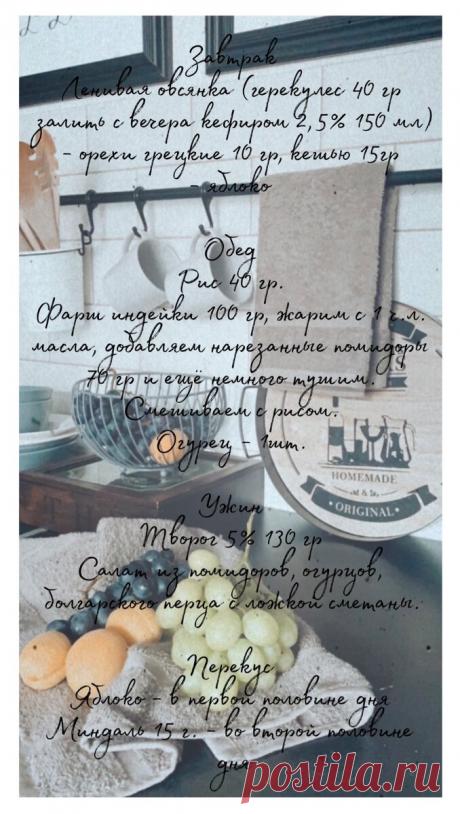 Завтрак
Ленивая овсянка (геркулес 40 гр
залить с вечера кефиром 2,5% 150 мл)
- орехи грецкие 10 гр, кешью 15гр
- яблоко
Обед
Рис 40 гр.
Фарш индейки 100 гр, жарим с 1 ч.л.
масла, добавляем нарезанные помидоры
70 гр и ещё немного тушим.
Смешиваем с рисом.
Огурец - 1шт.
HOMEMADE
ORIGINAL
Ужин
Творог 5% 130 гр
Салат из помидоров, огурцов,
болгарского перца с ложкой сметаны.
Перекус
Яблоко - в первой половине дня
Миндаль 15 г. - во второй половине
дня
postila.ru